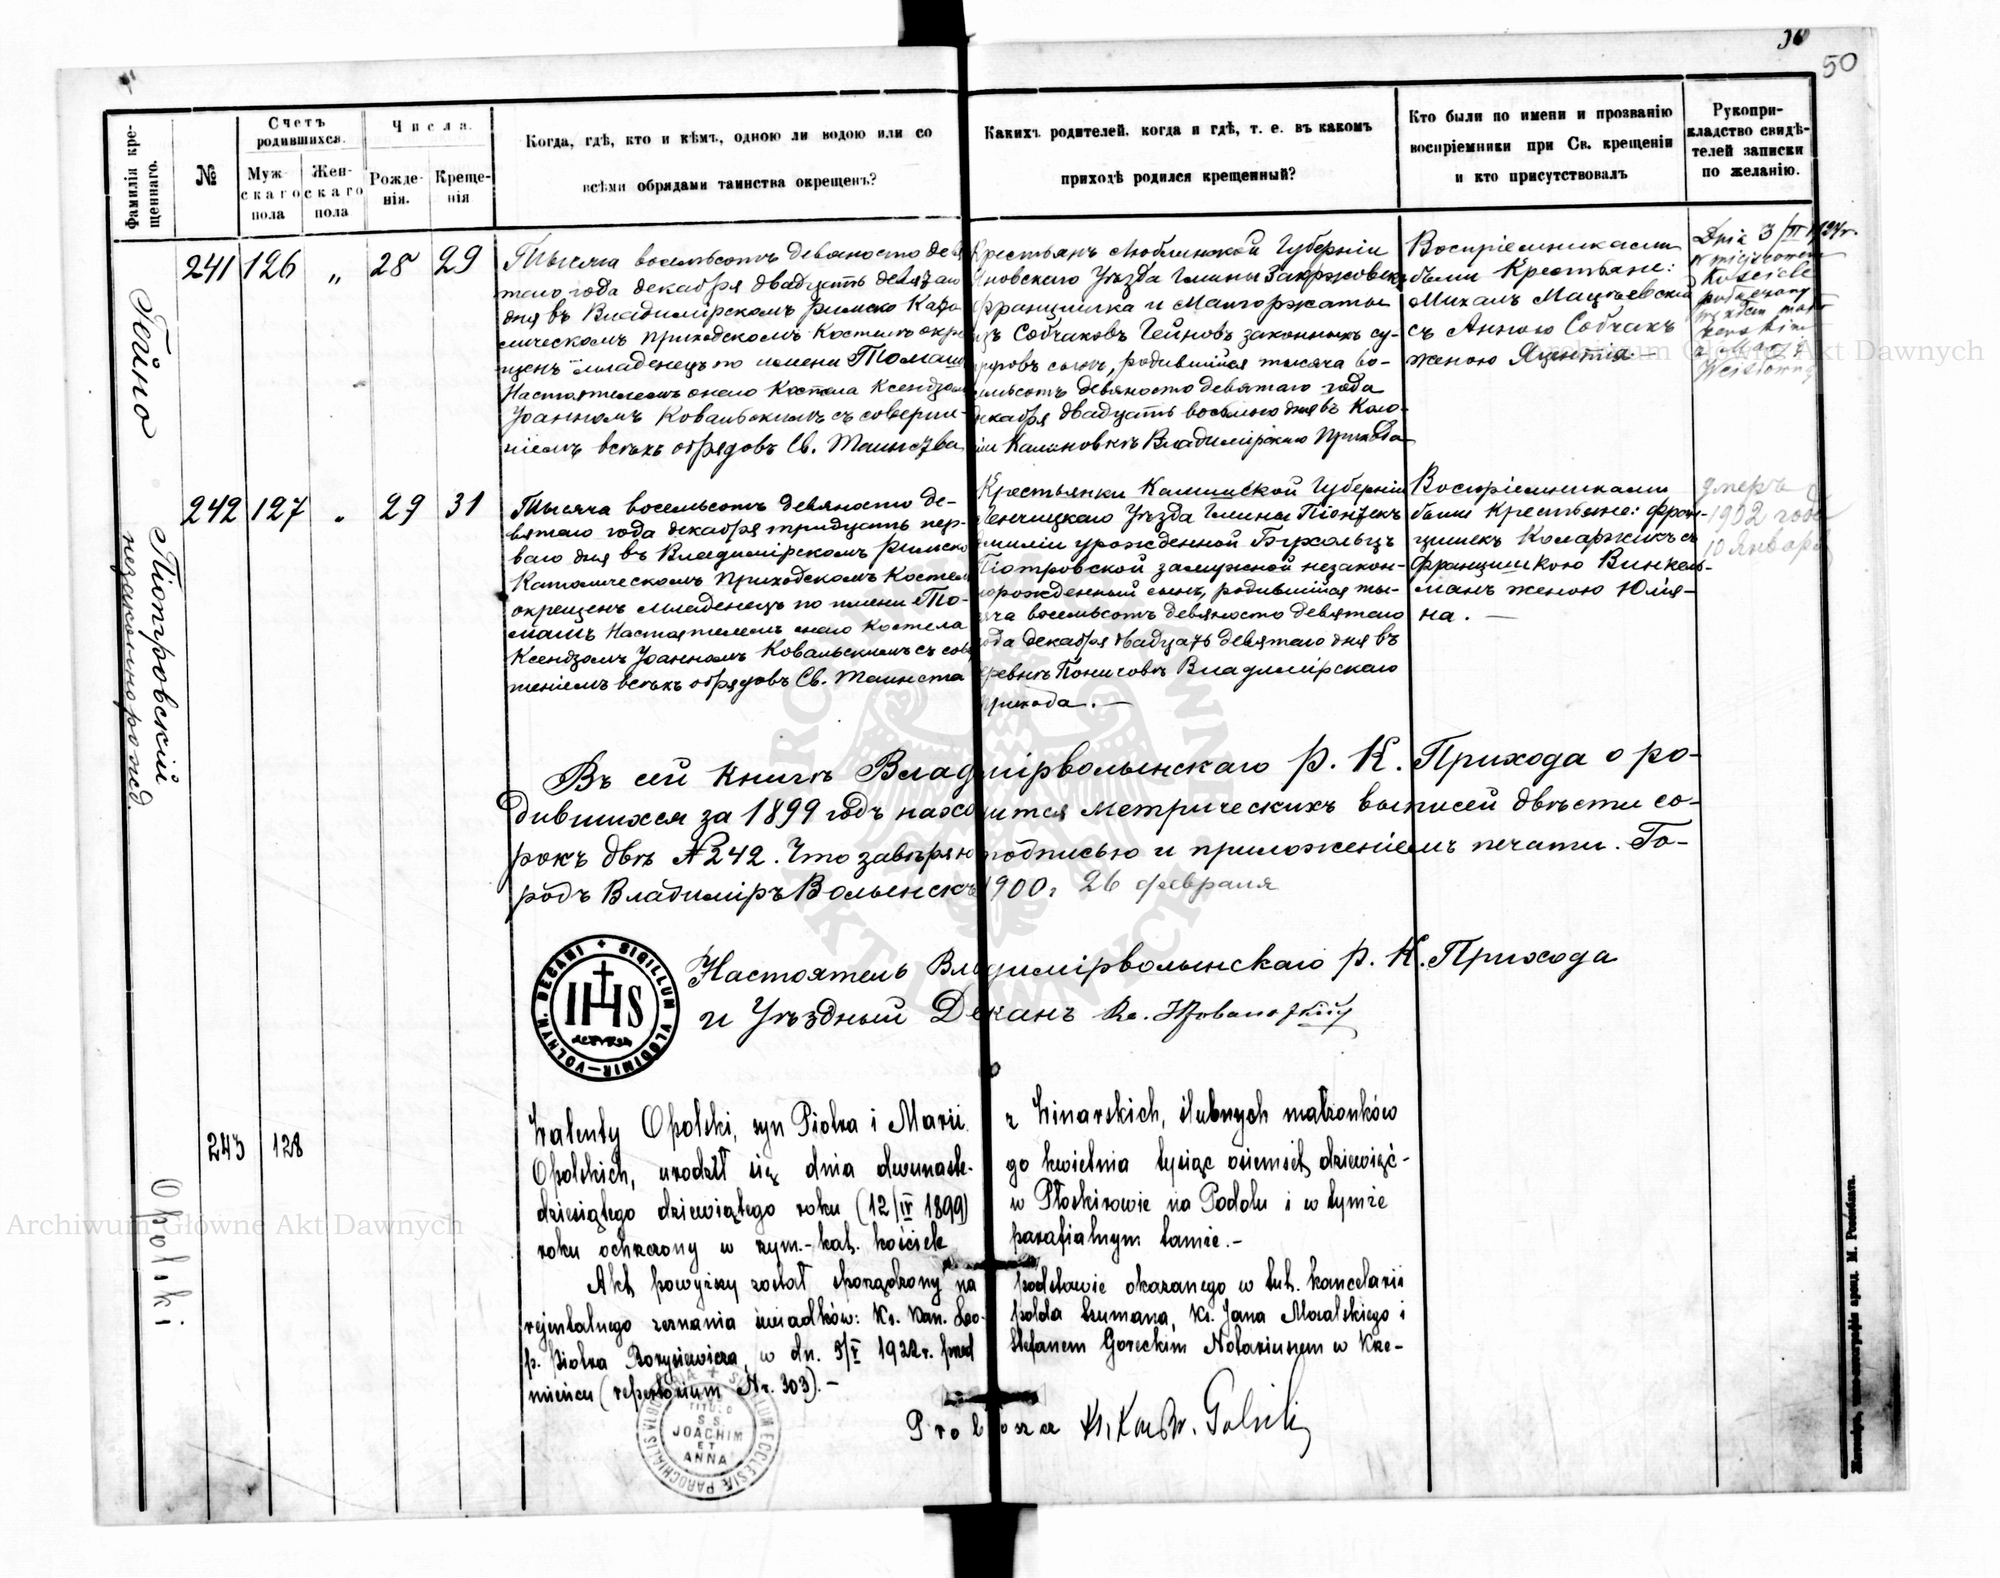 50
Фамилія кре-
щеннаго.
№
Счетъ
родившихся.
Муж-
скаго
пола
Жен-
скаго
пола
Числа.
Рожде-
нія.
Креще-
нія
Когда, гдѣ, кто и кѣмъ, одною ли водою или со
всѣми обрядами таинства окрещенъ?
Какихъ родителей, когда и гдѣ, т. е. въ какомъ
приходѣ родился крещенный?
Кто были по имени и прозванію
воспріемники при Св. крещеніи
и кто присутствовалъ
Рукопри-
кладство свидѣ-
телей записки
по желанію.
Гайно
241 126 „ 28 29
Тысяча восемьсотъ девяносто девя
таго года декабря двадцать девятаго
дня въ Владимірскомъ Римско Като
лическомъ Приходскомъ Костелѣ окре
щенъ младенецъ по имени Томашъ
Настоятелемъ онаго Костела Ксендзомъ
Іоанномъ Ковальскимъ съ соверше-
ніемъ всѣхъ обрядовъ Св. Таинства
Крестьянъ Люблинской Губерніи
Яновскаго Уѣзда Гмины Закржовекъ
Францишка и Малгоржаты
изъ Собчаковъ Гейновъ законныхъ су-
пруговъ сынъ, родившійся тысяча во-
семьсотъ девяносто девятаго года
декабря двадцать восьмаго дня въ Коло-
ніи Калиновкѣ Владимірскаго Прихода
Воспріемниками
были Крестьяне:
Михалъ Мацѣевскій
съ Анною Собчакъ
женою Яцентія. —
Dnia 3/II 1924 r.
w miejscowem
Kościele
Піотровскій
незаконнорожд.
242 127 „ 29 31
Тысяча восемьсотъ девяносто де-
вятаго года декабря тридцать пер-
ваго дня въ Владимірскомъ Римско
Католическомъ Приходскомъ Костелѣ
окрещенъ младенецъ по имени То-
машъ Настоятелемъ онаго Костела
Ксендзомъ Іоанномъ Ковальскимъ съ совер
шеніемъ всѣхъ обрядовъ Св. Таинства
Крестьянки Калишской Губерніи
Ленчицкаго Уѣзда Гмины Піонтекъ
Эмиліи урожденной Бухольцъ
Піотровской замужной незакон-
норожденный сынъ, родившійся ты-
сяча восемьсотъ девяносто девятаго
года декабря двадцать девятаго дня въ
деревнѣ Поничовъ Владимірскаго
Прихода. —
Воспріемниками
были Крестьяне: Фран-
цишекъ Коларжикъ съ
Францишкою Винкель-
манъ женою Юлія-
на. —
умеръ
1902 года
10 Января
Въ сей книгѣ Владимірволынскаго Р. К. Прихода о ро-
дившихся за 1899 годъ находится метрическихъ выписей двѣсти со-
рокъ двѣ № 242. Что завѣряю подписью и приложеніемъ печати. Го-
родъ Владиміръ Волынскъ 1900 г. 26 февраля
SIGILLUM VLODIMIR-VOLHYN. DECANI
IHS
Настоятель Владимірволынскаго Р. К. Прихода
и Уѣздный Деканъ Кс. Ковальскій
Opolski
243 128
Walenty Opolski, syn Piotra i Marii z Winarskich, ślubnych małżonków
Opolskich, urodził się dnia dwunaste- go kwietnia tysiąc osiemset dziewięć-
dziesiątego dziewiątego roku (12/IV 1899) w Płoskirowie na Podolu i w tymże
roku ochrzczony w rzym.-kat. kościele parafialnym tamże. —
Akt powyższy został sporządzony na podstawie okazanego w tut. kancelarii
rejentalnego zeznania świadków: Ks. Kan. Leo- polda Szumana, Ks. Jana Mocalskiego i
p. Piotra Borysiewicza, w dn. 5/V 1922 r. przed Stefanem Goreckim Notariuszem w Krze-
mieńcu (repertorium Nr. 303). —
SIGILLUM ECCLESIÆ PAROCHIALIS
TITULO
S.S.
JOACHIM
ET
ANNA
Proboszcz
Archiwum Główne Akt Dawnych
Archiwum Główne Akt Dawnych
ARCHIWUM GŁÓWNE AKT DAWNYCH